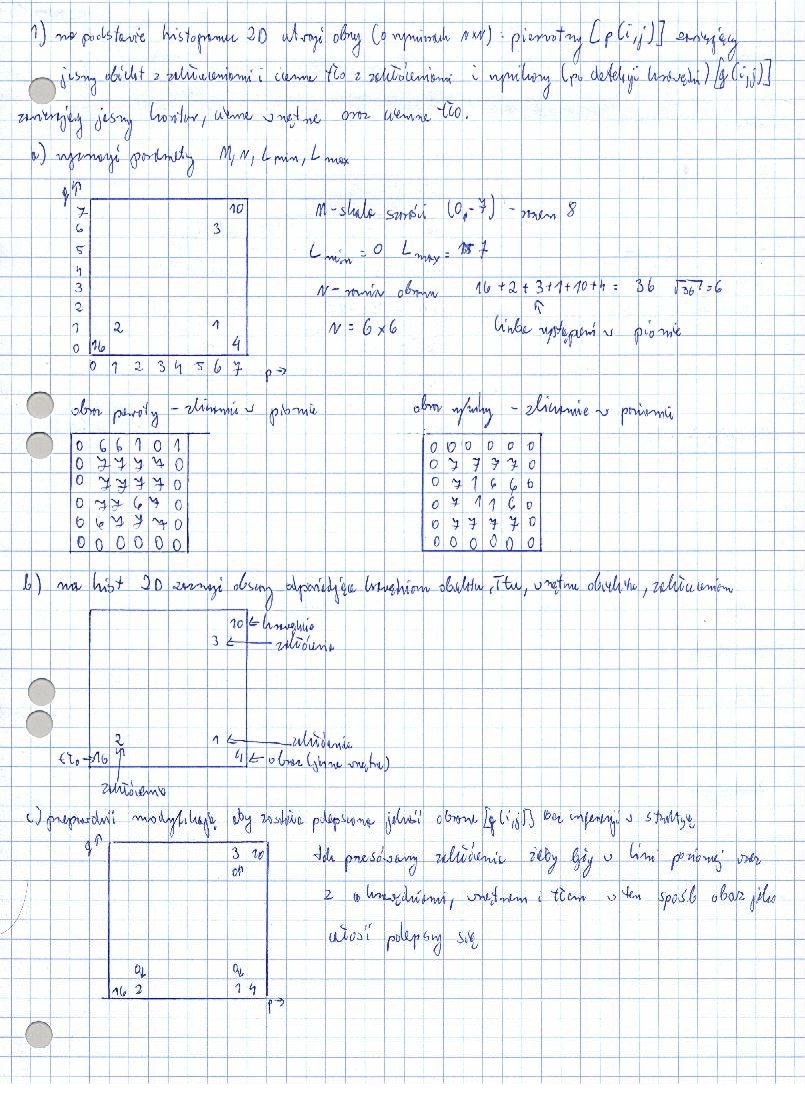 1) na podstawie histogramu 2D utworzyć obrazy (o wymiarach N×N) : pierwotny [p(i,j)] zawierający
jasny obiekt z zakłóceniami i ciemne tło z zakłóceniami i wynikowy (po detekcji krawędzi) [q(i,j)]
zawierający jasny kontur, ciemne wnętrze oraz ciemne tło.
a) wyznaczyć parametry M, N, Lmin, Lmax
q↑
7 10
6 3
5
4
3
2
1 2 1
0 16 4
0 1 2 3 4 5 6 7 p→
M - skala szarości (0 - 7) - razem 8
Lmin = 0 Lmax = 7
N - obrazu 16 + 2 + 3 + 1 + 10 + 4 = 36 √36 = 6
N = 6 × 6 liczba wystąpień w pionie
obraz - zliczanie w pionie
0 6 6 1 0 1
0 7 7 7 7 0
0 7 7 7 7 0
0 7 7 6 7 0
0 6 7 7 7 0
0 0 0 0 0 0
obraz - zliczanie w poziomie
0 0 0 0 0 0
0 7 7 7 7 0
0 7 1 6 6 0
0 7 1 1 6 0
0 7 7 7 7 0
0 0 0 0 0 0
b) na hist 2D zaznaczyć obszary odpowiadające krawędziom obiektu, tłu, wnętrzu obiektu, zakłóceniom
10 ← krawędzie
3 ← zakłócenie
2 1 ← zakłócenie
tło → 16 4 ← obraz (jasne wnętrze)
zakłócenia
c) modyfikację aby została polepszona jakość obrazu [q(i,j)] bez ingerencji w strukturę
q↑
3 10
0↑
0↓ 0↓
16 2 1 4
p→
zakłócenia żeby były w linii poziomej wraz
z krawędziami, wnętrzem i tłem w ten sposób obraz jako
całość polepszy się